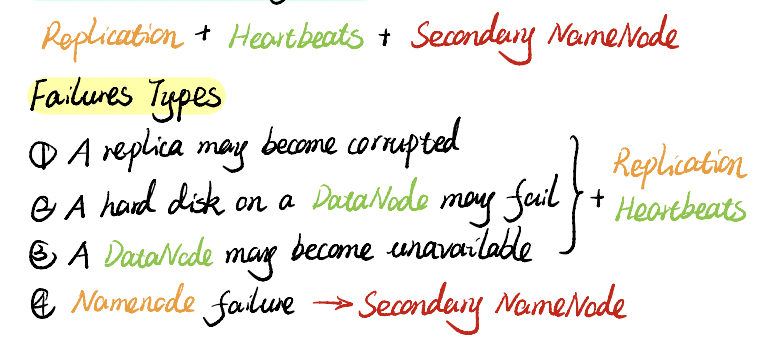 Replication + Heartbeats + Secondary NameNode
Failures Types
① A replica may become corrupted
② A hard disk on a DataNode may fail
③ A DataNode may become unavailable
+ Replication
Heartbeats
④ Namenode failure → Secondary NameNode